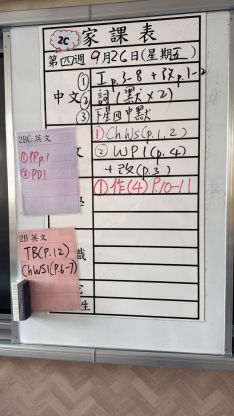 2C 家課表
第四週 9月26日(星期五)
中文
① 工p.3-8 + 改p.1-2
② 詞1(默×2)
③ 下星四中默
文
① ChWS(p.1,2)
② WP1(p.4)
+改(p.3)
① 作(4) P.10-11
2BC 英文
① PPp.1
② PD1
2B 英文
TB(P.12)
ChWS1(P.6-7)
識
生